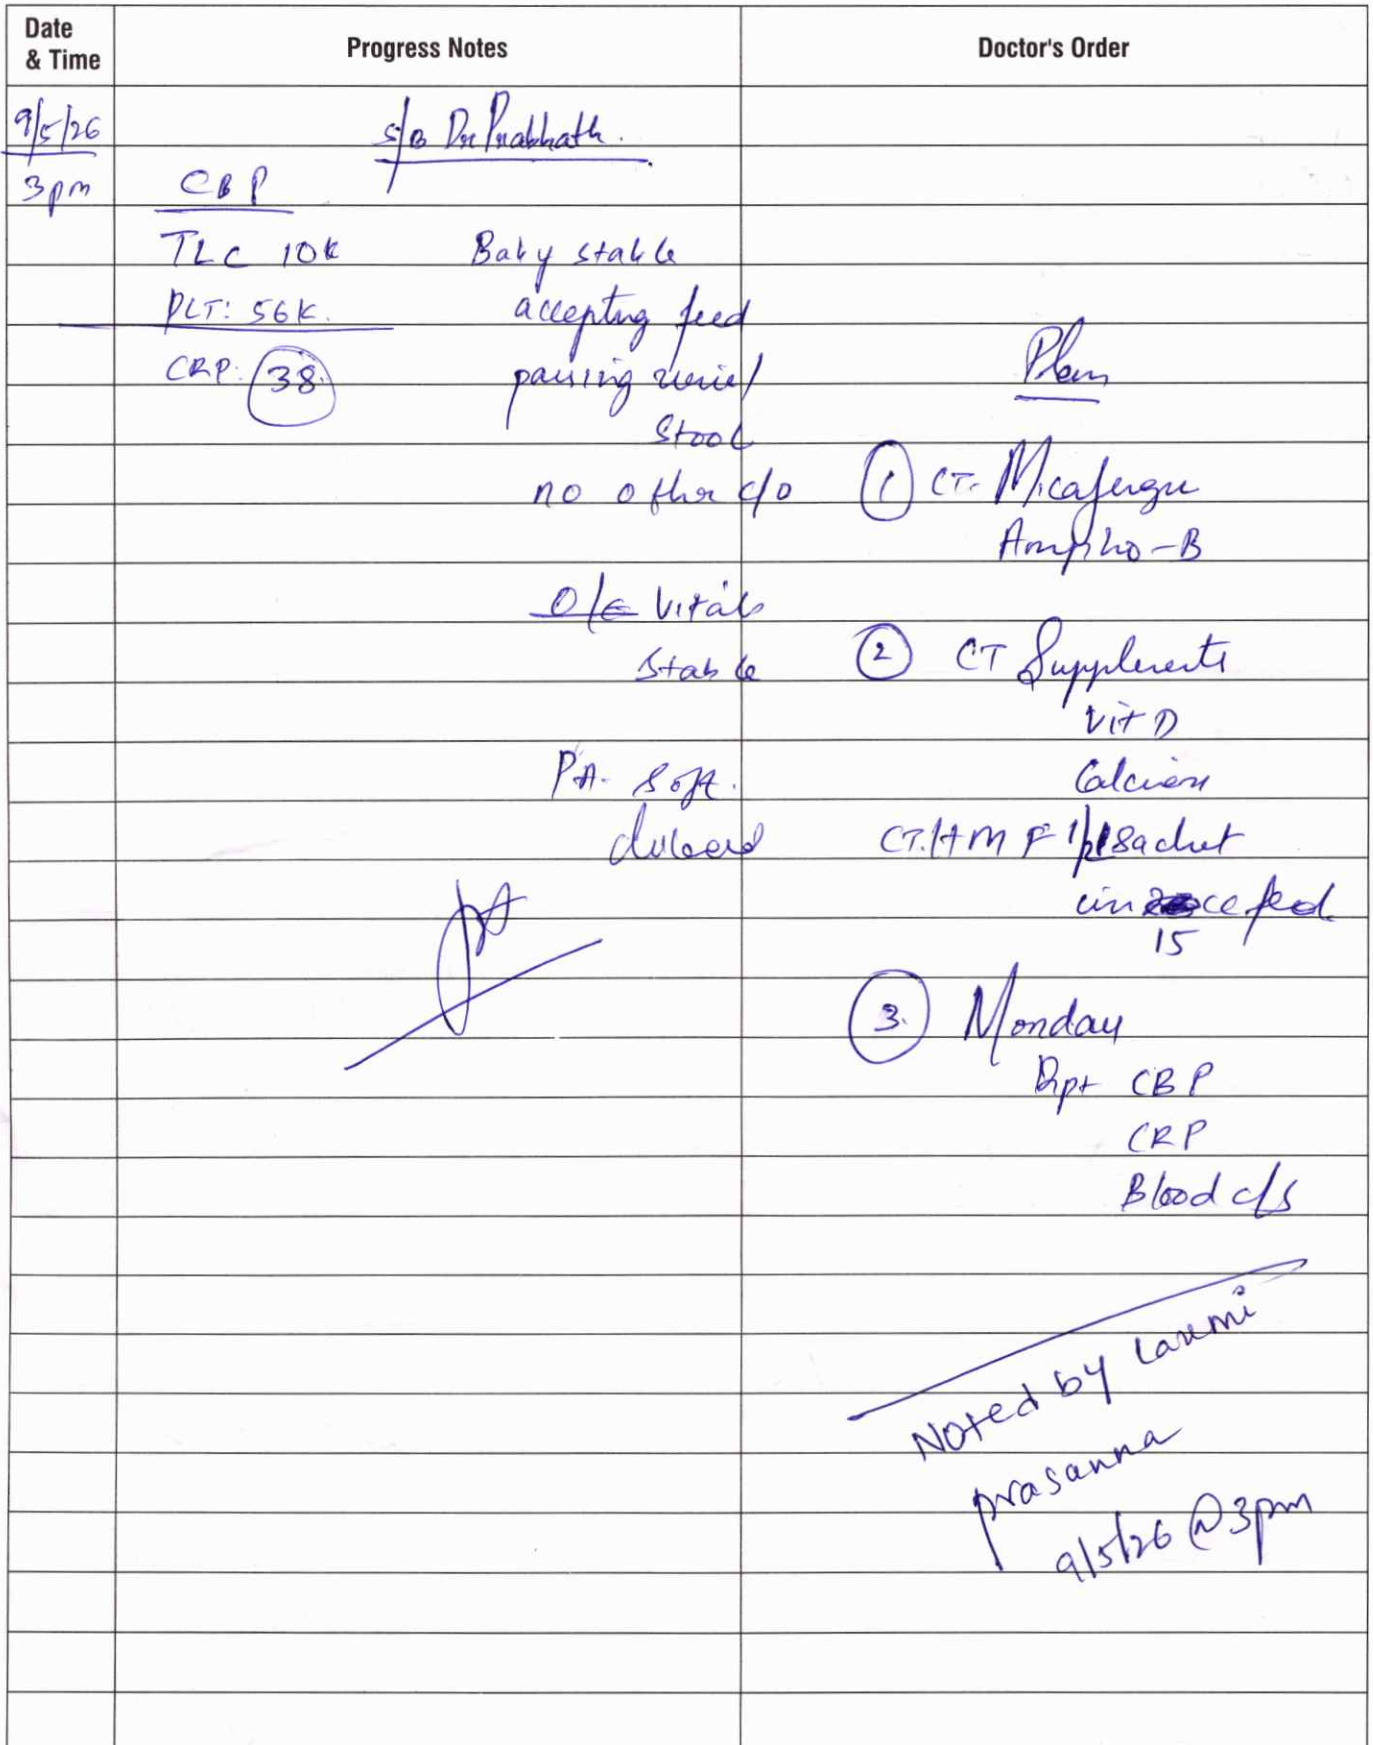 Date & Time
Progress Notes
Doctor's Order
9/5/26
3pm
S/B Dr Prabhath.
CBP
TLC 10k
PLT: 56K.
CRP: 38.
Baby stable
accepting feed
passing urine/
stool
no other c/o
O/E Vitals
stable
P/A. soft.
Plan
1 CT.
Ampho-B
2 CT Supplements
Vit D
Calcium
CT. HMF 1/2 sachet
in cc feed
15
3. Monday
Rpt CBP
CRP
Blood c/s
Noted by Laxmi
prasanna
9/5/26 @ 3pm